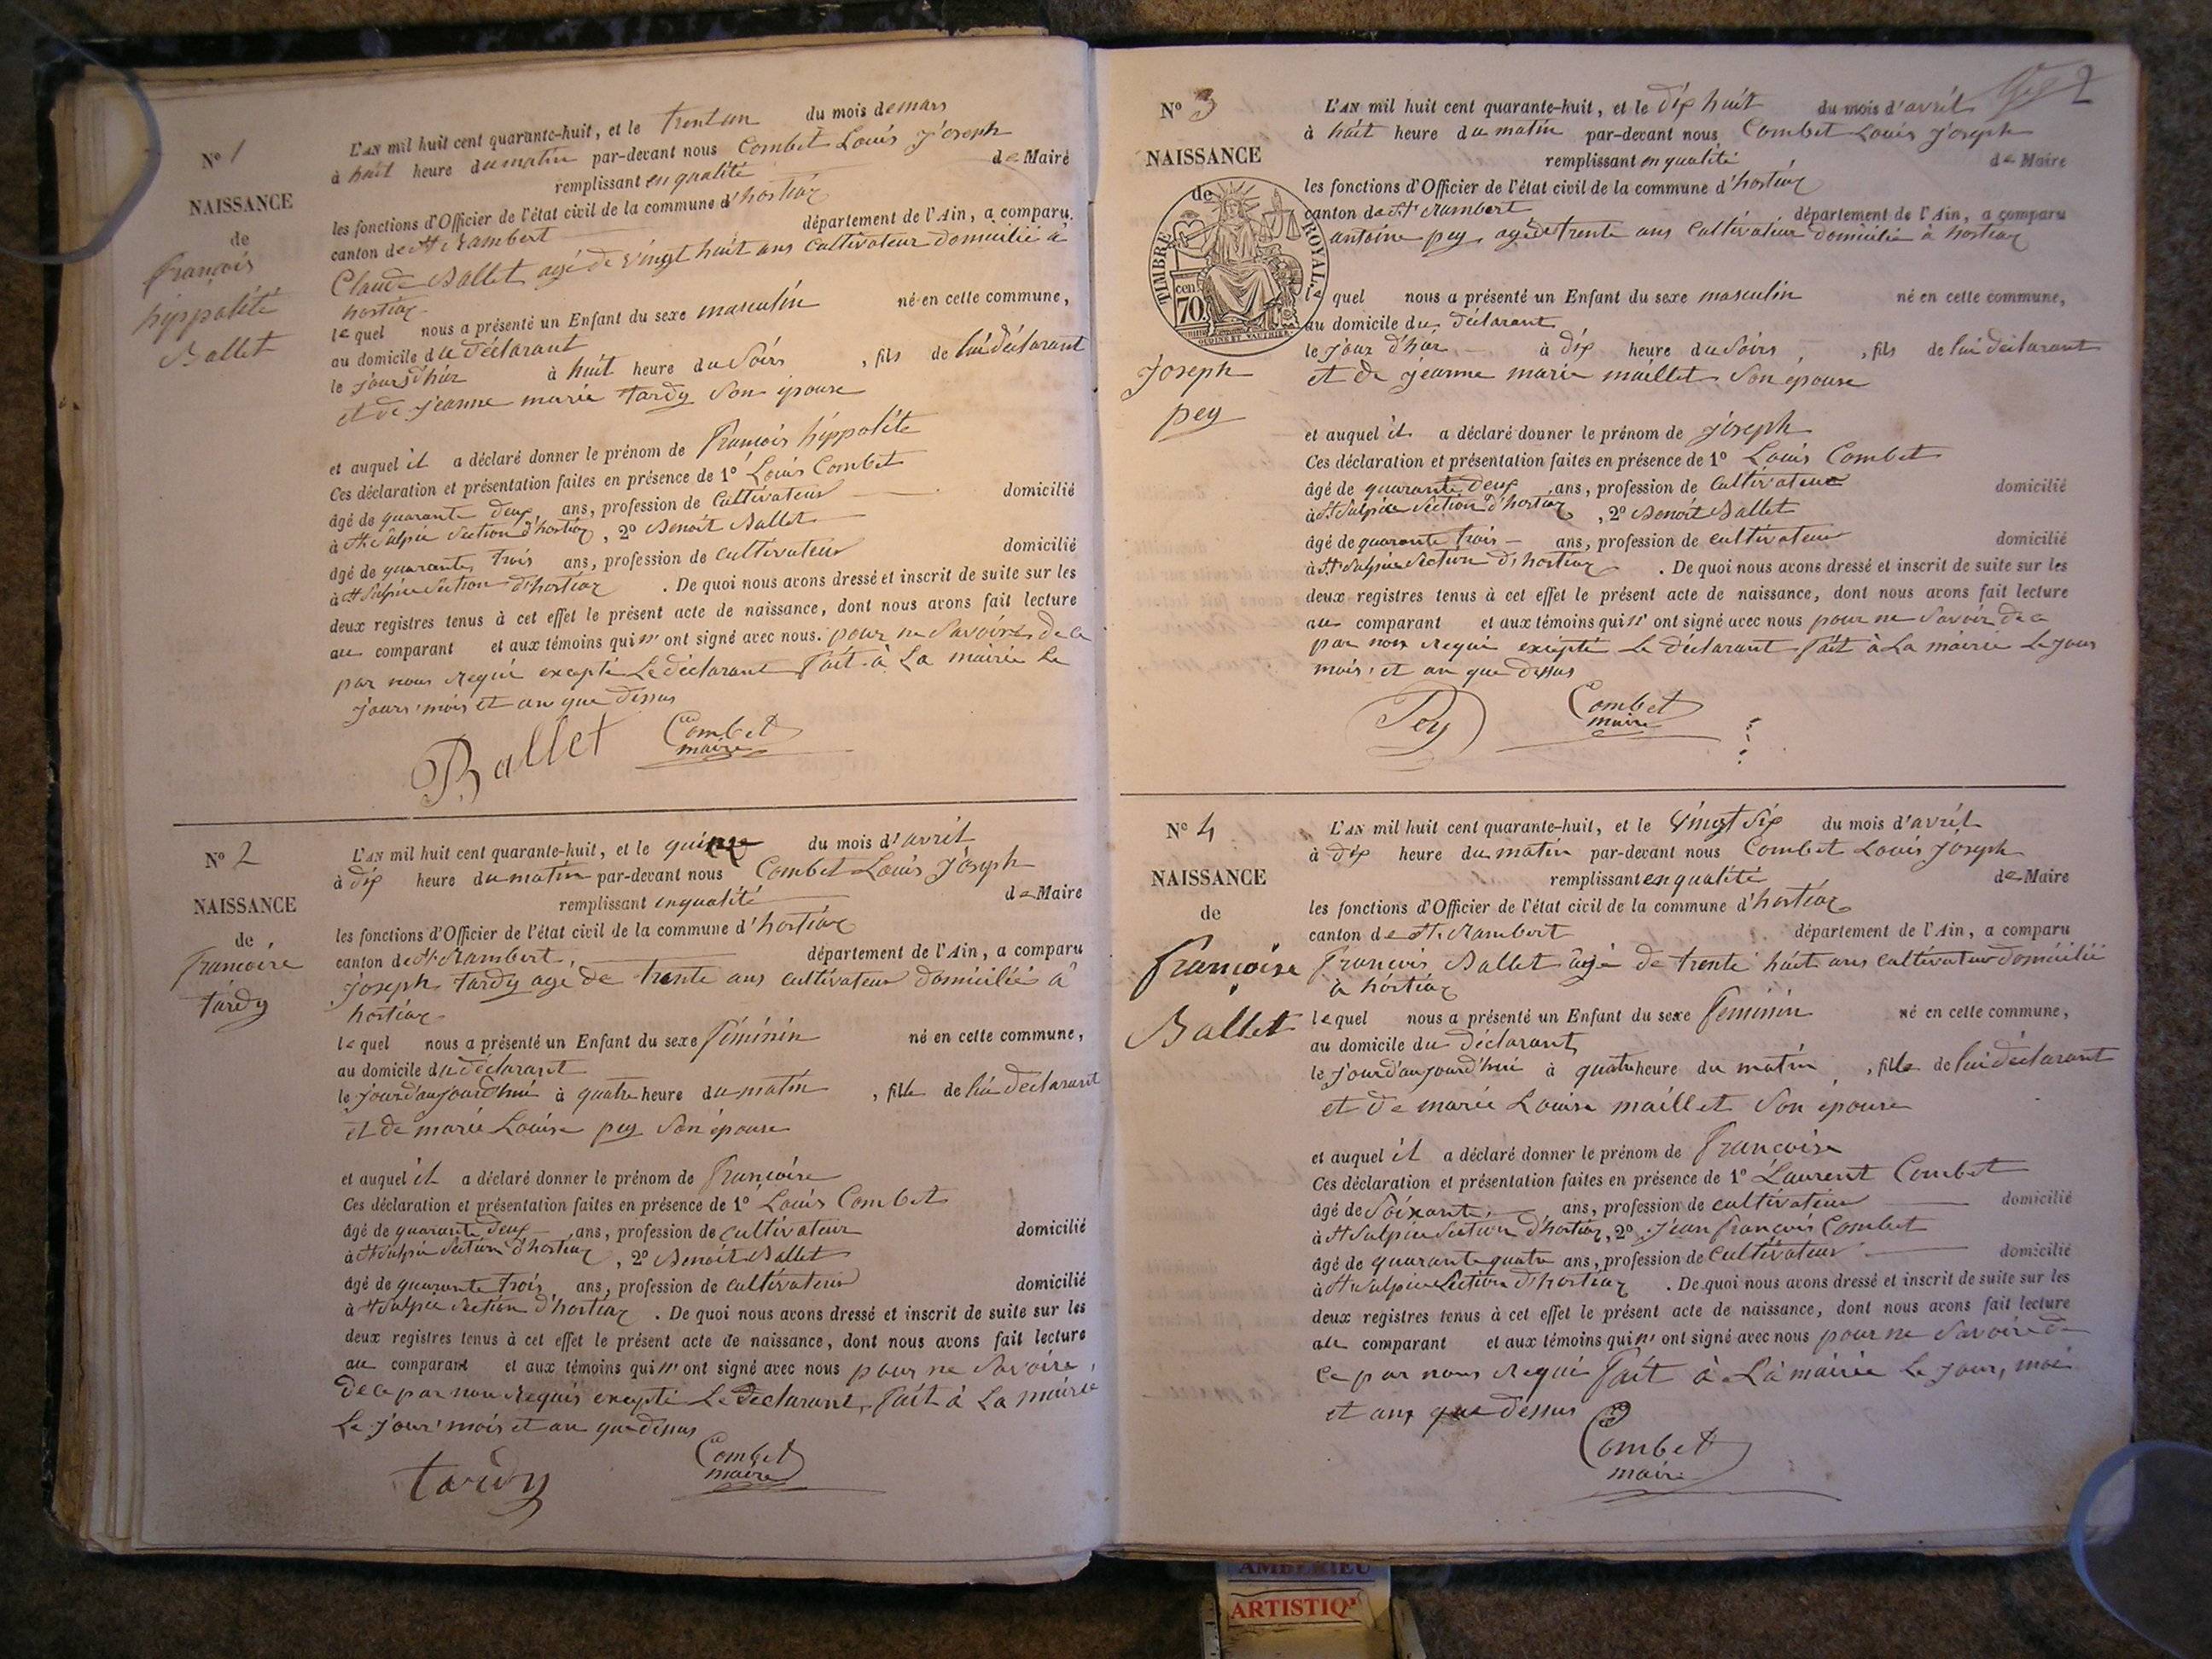 N° 1
NAISSANCE
de
françois
hippolité
Ballet
L'AN mil huit cent quarante-huit, et le trent un du mois de mars
à huit heure du matin par-devant nous Combet Louis joseph
remplissant en qualité de Maire
les fonctions d'Officier de l'état civil de la commune d'hostiaz
canton de St Rambert département de l'Ain, a comparu
Claude Ballet agé de vingt huit ans cultivateur domicilié à
hostiaz
lequel nous a présenté un Enfant du sexe masculin né en cette commune,
au domicile du déclarant
le jours d'hier à huit heure du soirs, fils de lui déclarant
et de jeanne marie tardy son épouse
et auquel il a déclaré donner le prénom de françois hippolite
Ces déclaration et présentation faites en présence de 1° Louis Combet
âgé de quarante deux ans, profession de cultivateur domicilié
à St Sulpice Section d'hostiaz, 2° Benoit Ballet
âgé de quarante trois ans, profession de cultivateur domicilié
à St Sulpice Section d'hostiaz. De quoi nous avons dressé et inscrit de suite sur les
deux registres tenus à cet effet le présent acte de naissance, dont nous avons fait lecture
au comparant et aux témoins qui n' ont signé avec nous. pour ne savoire de ce
par nous requi excepté Le déclarant fait à La mairie Le
jours, mois et an que dessus
Ballet Combet
maire
N° 2
NAISSANCE
de
francoise
tardy
L'AN mil huit cent quarante-huit, et le quinze du mois d'avril
à dix heure du matin par-devant nous Combet Louis joseph
remplissant en qualité de Maire
les fonctions d'Officier de l'état civil de la commune d'hostiaz
canton de St Rambert, département de l'Ain, a comparu
joseph tardy agé de trente ans cultivateur domicilié à
hostiaz
lequel nous a présenté un Enfant du sexe féminin né en cette commune,
au domicile du déclarant
le jour d'aujourd'hui à quatre heure du matin, fille de lui declarant
et de marie Louise pey son épouse
et auquel il a déclaré donner le prénom de francoise
Ces déclaration et présentation faites en présence de 1° Louis Combet
âgé de quarante deux ans, profession de cultivateur domicilié
à St Sulpice Section d'hostiaz, 2° Benoit Ballet
âgé de quarante trois ans, profession de cultivateur domicilié
à St Sulpice Section d'hostiaz. De quoi nous avons dressé et inscrit de suite sur les
deux registres tenus à cet effet le présent acte de naissance, dont nous avons fait lecture
au comparant et aux témoins qui n' ont signé avec nous pour ne savoire
de ce par nou requis excepté Le declarant, fait à La mairie
Le jour, mois et an que dessus
tardy Combet
maire
2
N° 3
NAISSANCE
de
TIMBRE ROYAL
70 cen
OUDINE ET VAUTHIER
joseph
pey
L'AN mil huit cent quarante-huit, et le dix huit du mois d'avril
à huit heure du matin par-devant nous Combet Louis joseph
remplissant en qualité de Maire
les fonctions d'Officier de l'état civil de la commune d'hostiaz
canton de St Rambert département de l'Ain, a comparu
antoine pey, agé de trente ans cultivateur domicilié à hostiaz
lequel nous a présenté un Enfant du sexe masculin né en cette commune,
au domicile du déclarant
le jour d'hier à dix heure du soirs, fils de lui déclarant
et de jeanne marie maillet son épouse
et auquel il a déclaré donner le prénom de joseph
Ces déclaration et présentation faites en présence de 1° Louis Combet
âgé de quarante deux ans, profession de cultivateur domicilié
à St Sulpice Section d'hostiaz, 2° Benoit Ballet
âgé de quarante trois ans, profession de cultivateur domicilié
à St Sulpice Section d'hostiaz. De quoi nous avons dressé et inscrit de suite sur les
deux registres tenus à cet effet le présent acte de naissance, dont nous avons fait lecture
au comparant et aux témoins qui n' ont signé avec nous pour ne savoir de ce
par nous requi excepté Le déclarant fait à La mairie Le jour
mois, et an que dessus
Pey Combet
maire
N° 4
NAISSANCE
de
françoise
Ballet
L'AN mil huit cent quarante-huit, et le vingt six du mois d'avril
à dix heure du matin par-devant nous Combet Louis joseph
remplissant en qualité de Maire
les fonctions d'Officier de l'état civil de la commune d'hostiaz
canton de St Rambert département de l'Ain, a comparu
françois Ballet agé de trente huit ans cultivateur domicilié
à hostiaz
lequel nous a présenté un Enfant du sexe féminin né en cette commune,
au domicile du déclarant
le jour d'aujourd'hui à quatre heure du matin, fille de lui déclarant
et de marie Louise maillet son épouse
et auquel il a déclaré donner le prénom de francoise
Ces déclaration et présentation faites en présence de 1° Laurent Combet
âgé de soixante ans, profession de cultivateur domicilié
à St Sulpice Section d'hostiaz, 2° jean françois Combet
âgé de quarante quatre ans, profession de cultivateur domicilié
à St Sulpice Section d'hostiaz. De quoi nous avons dressé et inscrit de suite sur les
deux registres tenus à cet effet le présent acte de naissance, dont nous avons fait lecture
au comparant et aux témoins qui n' ont signé avec nous pour ne savoire de
ce par nous requi fait à La mairie Le jour, moi
et anx que dessus
Combet
maire
AMBERIEU
ARTISTIQ